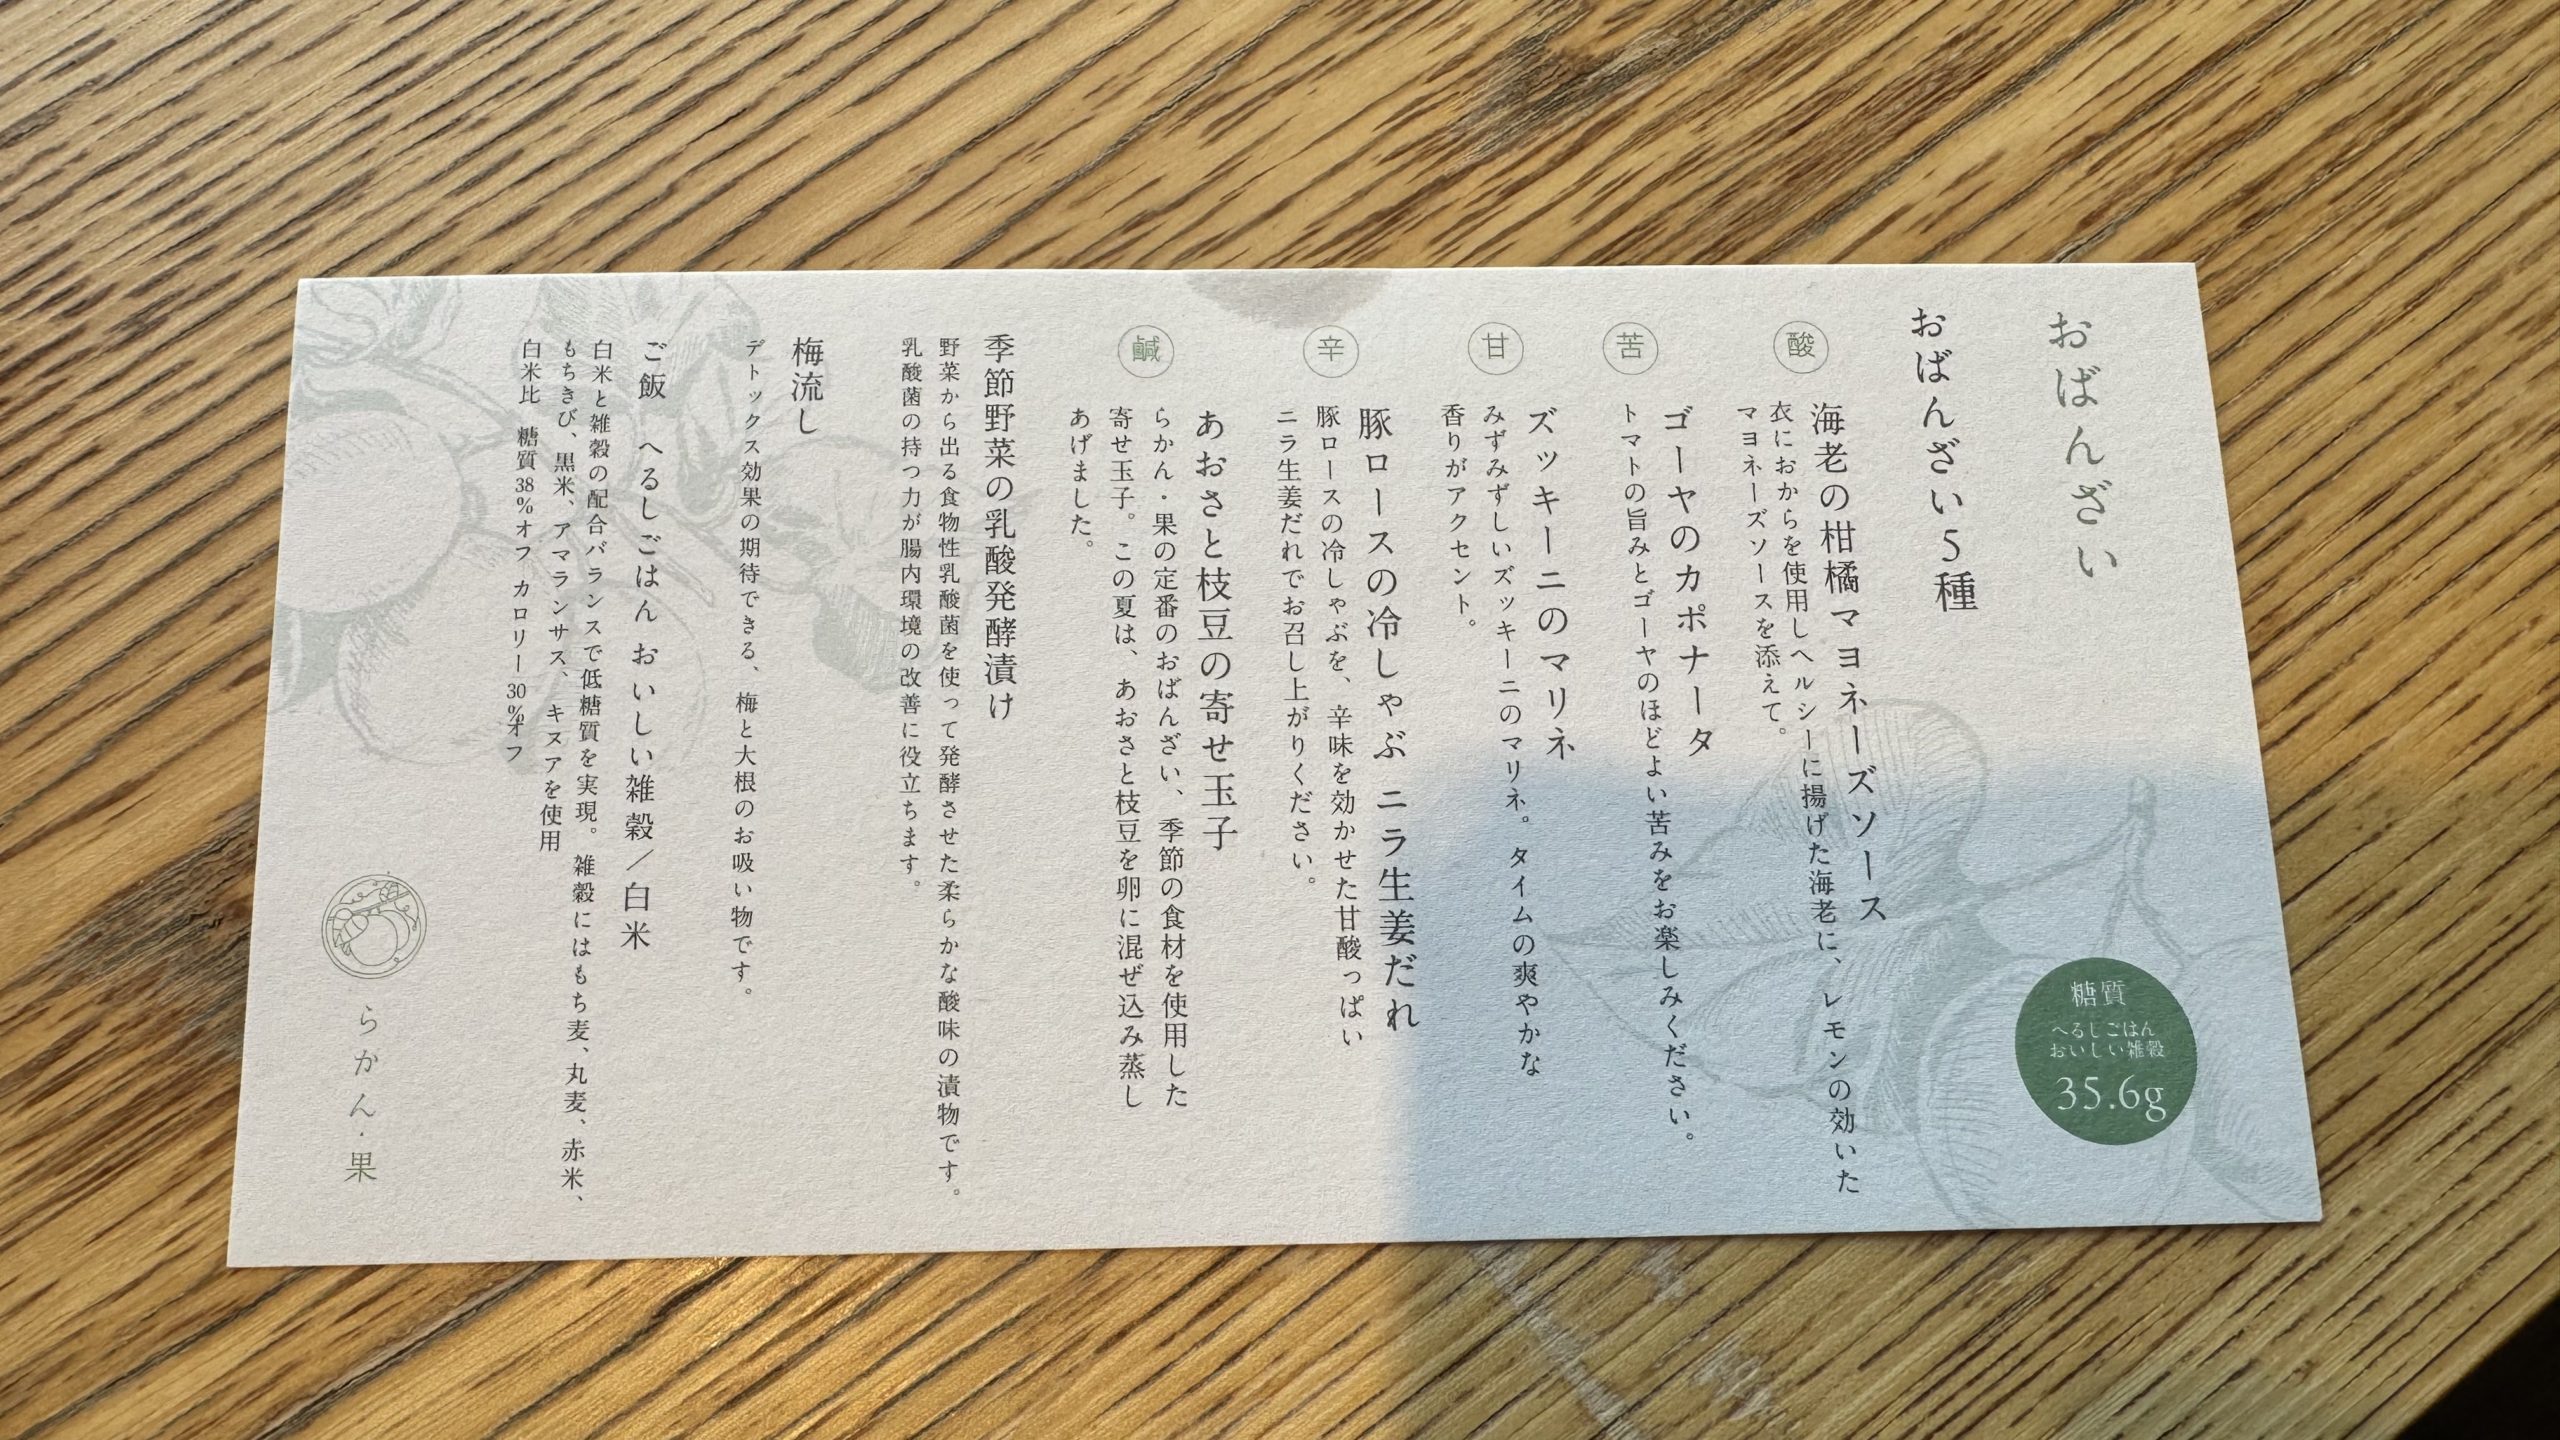 おばんざい
おばんざい5種
酸
海老の柑橘マヨネーズソース
衣におからを使用しヘルシーに揚げた海老に、レモンの効いた
マヨネーズソースを添えて。
苦
ゴーヤのカポナータ
トマトの旨みとゴーヤのほどよい苦みをお楽しみください。
甘
ズッキーニのマリネ
みずみずしいズッキーニのマリネ。タイムの爽やかな
香りがアクセント。
辛
豚ロースの冷しゃぶ ニラ生姜だれ
豚ロースの冷しゃぶを、辛味を効かせた甘酸っぱい
ニラ生姜だれでお召し上がりください。
鹹
あおさと枝豆の寄せ玉子
らかん・果の定番のおばんざい、季節の食材を使用した
寄せ玉子。この夏は、あおさと枝豆を卵に混ぜ込み蒸し
あげました。
季節野菜の乳酸発酵漬け
野菜から出る食物性乳酸菌を使って発酵させた柔らかな酸味の漬物です。
乳酸菌の持つ力が腸内環境の改善に役立ちます。
梅流し
デトックス効果の期待できる、梅と大根のお吸い物です。
ご飯 へるしごはん おいしい雑穀／白米
白米と雑穀の配合バランスで低糖質を実現。雑穀にはもち麦、丸麦、赤米、
もちきび、黒米、アマランサス、キヌアを使用
白米比 糖質38%オフ カロリー30%オフ
糖質
へるしごはん
おいしい雑穀
35.6g
らかん・果